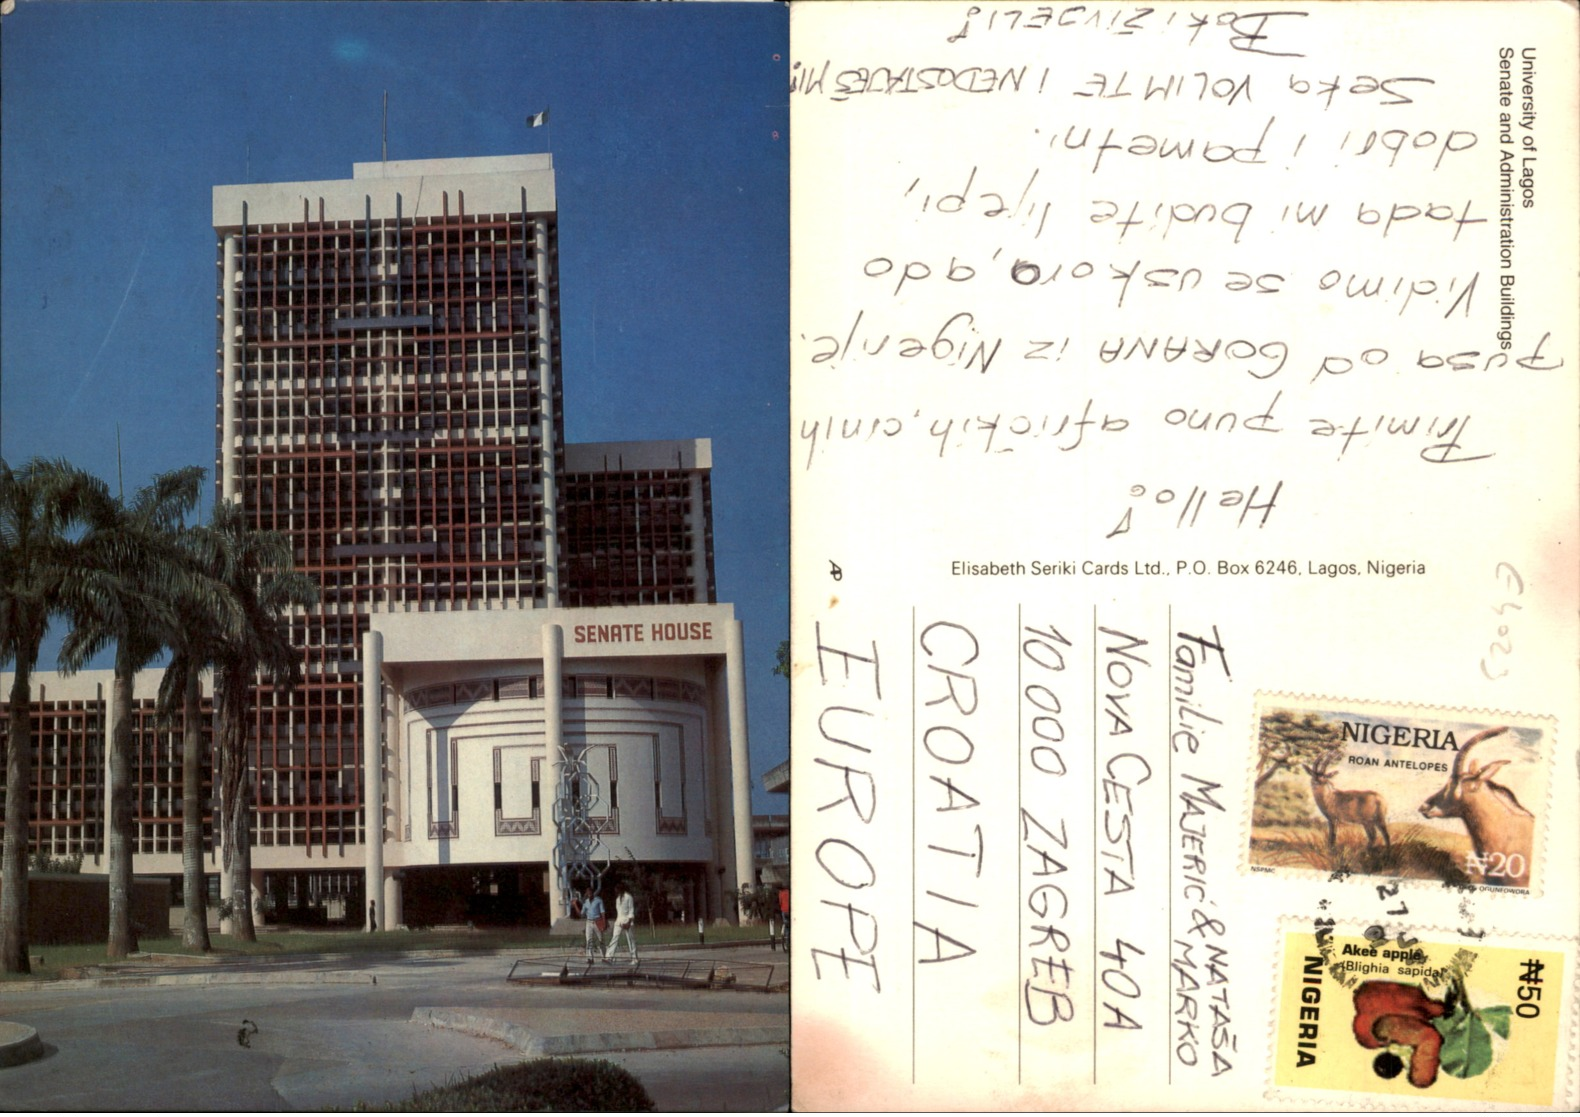 SENATE HOUSE
University of Lagos
Senate and Administration Buildings
Hello!
Primite puno afričkih, crnih
pusa od GORANA iz Nigerije.
Vidimo se uskoro, a do
tada mi budite lijepi,
dobri i pametni.
Seka VOLIM TE I NEDOSTAJEŠ MI!
BOKI ŽIVJELI!
Elisabeth Seriki Cards Ltd., P.O. Box 6246, Lagos, Nigeria
AP
Familie MAJERIĆ & NATAŠA
& MARKO
NOVA CESTA 40A
10 000 ZAGREB
CROATIA
EUROPE
NIGERIA
ROAN ANTELOPES
₦20
NSPMC
₦50
Akee apple
(Blighia sapida)
NIGERIA